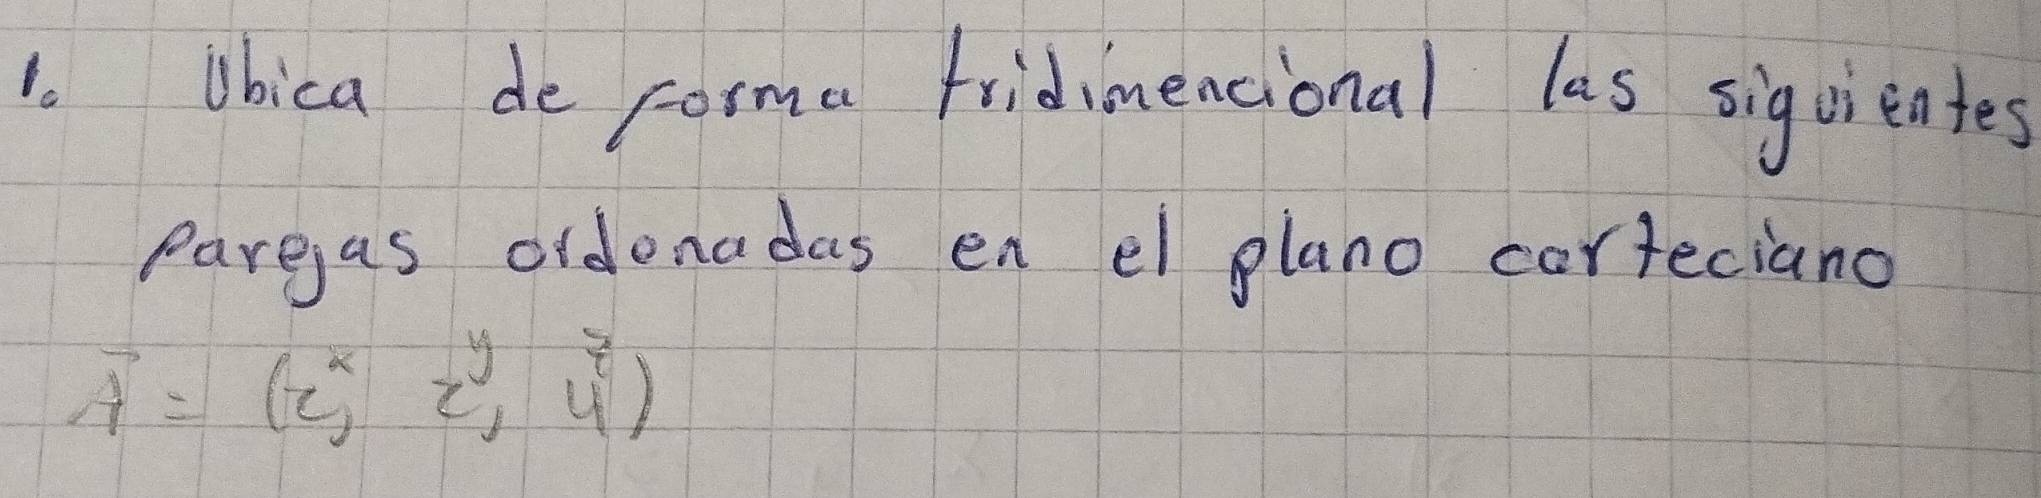 1. Ubica de forma tridimencional las siguientes
parejas ordenadas en el plano carteciano
A⃗ = (2ˣ, 2ʸ, 4ᶻ)